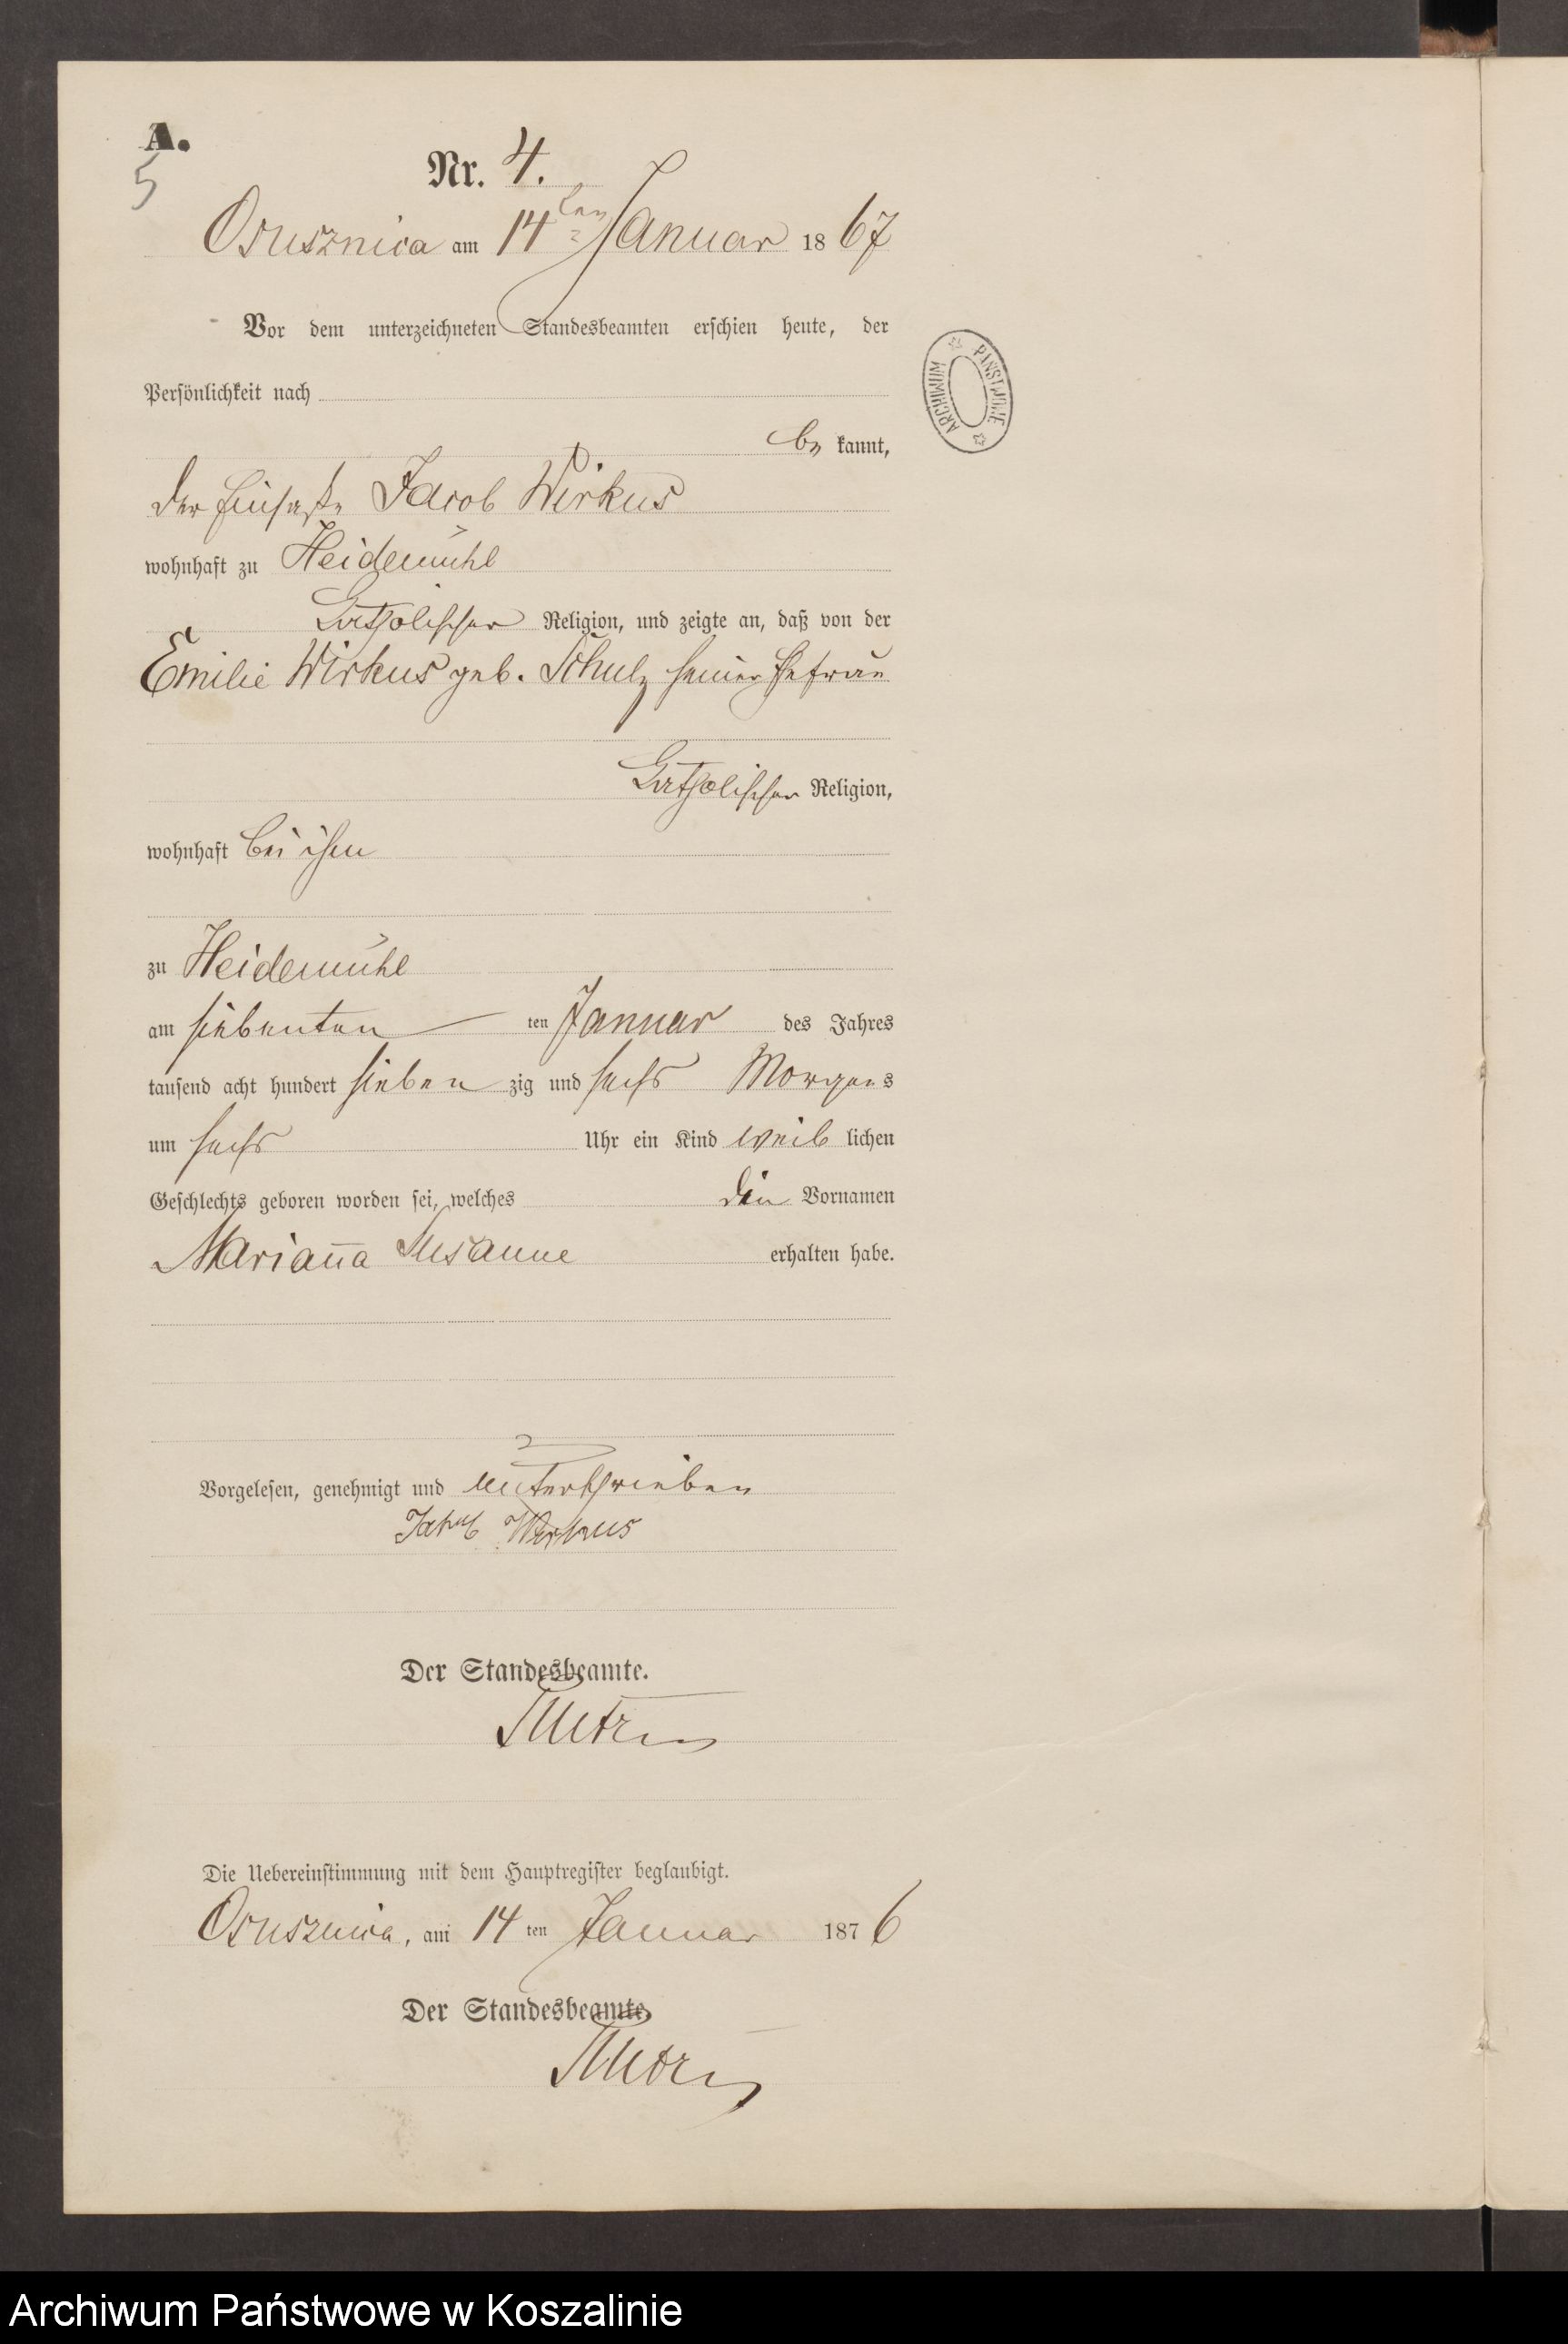 A.
5
Nr. 4.
Osusznica am 14ten Januar 1867
Vor dem unterzeichneten Standesbeamten erschien heute, der
Persönlichkeit nach
be kannt,
der Einsaße Jacob Wirkus
wohnhaft zu Heidemühl
katholischer Religion, und zeigte an, daß von der
Emilie Wirkus geb. Schulz seiner Ehefrau
katholischer Religion,
wohnhaft bei ihm
zu Heidemühl
am siebenten ten Januar des Jahres
tausend acht hundert sieben zig und sechs Morgens
um sechs Uhr ein Kind weib lichen
Geschlechts geboren worden sei, welches den Vornamen
Mariaña Susanne erhalten habe.
Vorgelesen, genehmigt und unterschrieben
Jakob Wirkus
Der Standesbeamte.
Die Uebereinstimmung mit dem Hauptregister beglaubigt.
Osusznica, am 14 ten Januar 1876
Der Standesbeamte.
ARCHIWUM PAŃSTWOWE
Archiwum Państwowe w Koszalinie